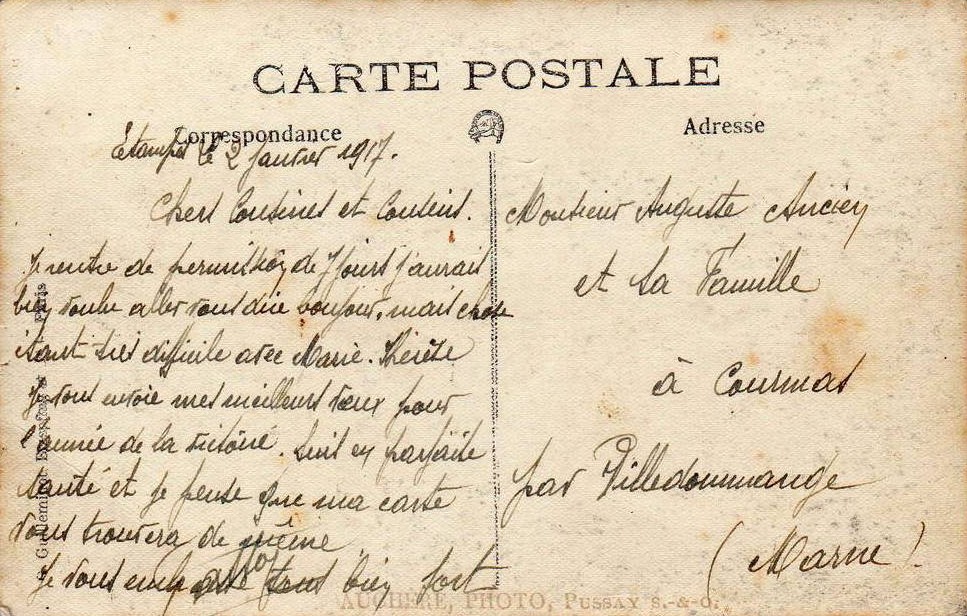 CARTE POSTALE
Correspondance
Adresse
Etampes le 2 Janvier 1917.
Chers Cousines et Cousins.
Je rentre de permission de 7 jours j'aurais
bien voulu aller vous dire bonjour. mais chose
étant très difficile avec Marie. Thérèse
Je vous envoie mes meilleurs vœux pour
l'année de la victoire. Suis en parfaite
santé et je pense que ma carte
vous trouvera de même
Je vous embrasse tous bien fort
Monsieur Auguste Ancien
et sa Famille
à Courmas
par Villedommange
(Marne)
Guilleminot
Paris
AUGHERE, PHOTO, PUSSAY S.-&-O.